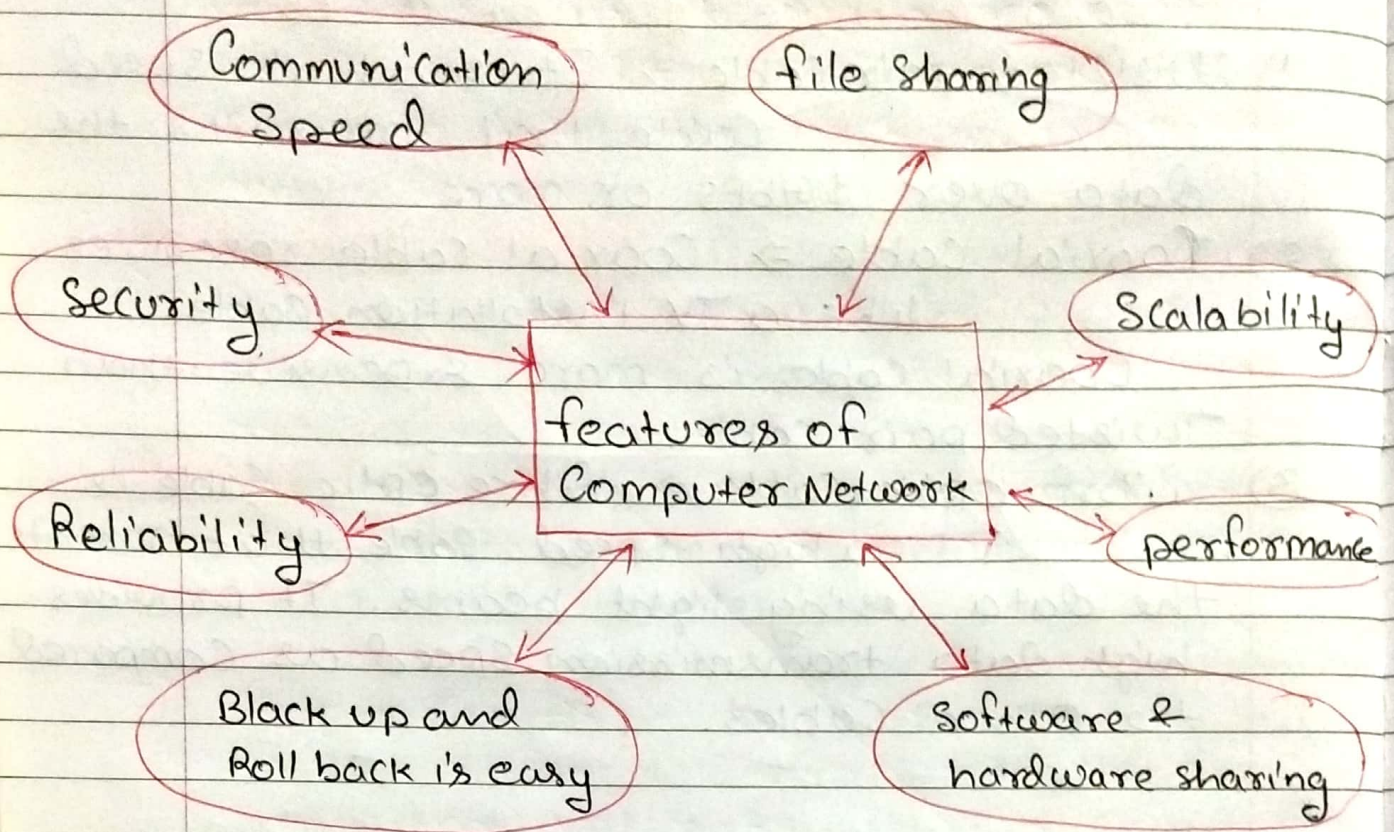 Communication
Speed
file sharing
Security
Scalability
features of
Computer Network
Reliability
performance
Black up and
Roll back is easy
Software &
hardware sharing